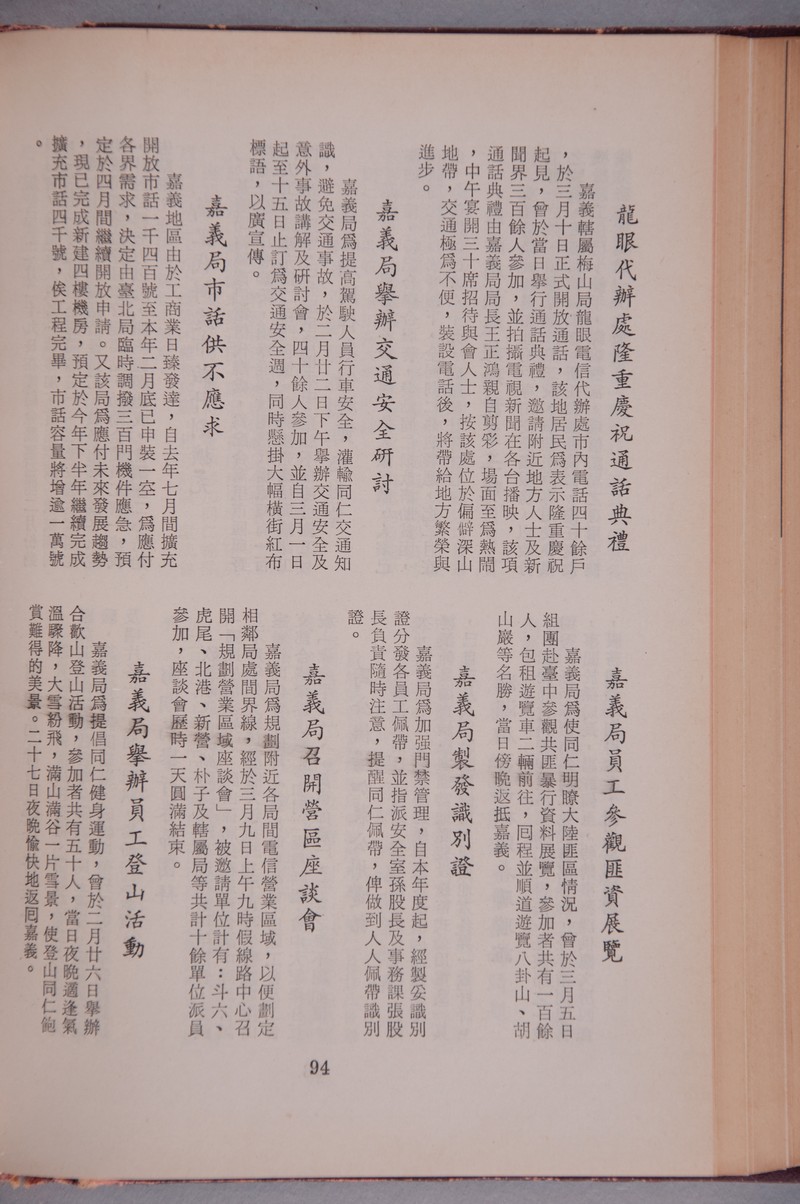 龍眼代辦處隆重慶祝通話典禮
嘉義轄屬梅山局龍眼電信代辦處市內電話四十餘戶
，於三月十日正式開放通話，該地居民爲表示隆重慶祝
起見，曾於當日舉行通話典禮，邀請附近地方人士及新
聞界三百餘人參加，並拍攝電視新聞在各台播映，該項
通話典禮由嘉義局局長王正鴻親自剪彩，場面至爲熱鬧
，中午宴開三十席招待與會人士，按該處位於偏僻深山
地帶，交通極爲不便，裝設電話後，將帶給地方繁榮與
進步。
嘉義局舉辦交通安全研討
嘉義局爲提高駕駛人員行車安全，灌輸同仁交通知
識，避免交通事故，於二月廿二日下午舉辦交通安全及
意外事故講解及研討會，四十餘人參加，並自三月一日
起至十五日止訂爲交通安全週，同時懸掛大幅橫街紅布
標語，以廣宣傳。
嘉義局市話供不應求
嘉義地區由於工商業日臻發達，自去年七月間擴充
開放市話一千四百號至本年二月底已申裝一空，爲應付
各界需求，決定由臺北局臨時調撥三百門機件應急，預
定於四月間繼續開放申請。又該局爲應付未來發展趨勢
，現已完成新建四樓機房，預定於今年下半年繼續完成
擴充市話四千號，俟工程完畢，市話容量將增逾一萬號
。
嘉義局員工參觀匪資展覽
嘉義局爲使同仁明瞭大陸匪區情況，曾於三月五日
組團赴臺中參觀共匪暴行資料展覽，參加者共有一百餘
人，包租遊覽車二輛前往，囘程並順道遊覽八卦山、胡
山巖等名勝，當日傍晚返抵嘉義。
嘉義局製發識別證
嘉義局爲加强門禁管理，自本年度起，經製妥識別
證分發各員工佩帶，並指派安全室孫股長及事務課張股
長負責隨時注意，提醒同仁佩帶，俾做到人人佩帶識別
證。
嘉義局召開營區座談會
嘉義局爲規劃附近各局間電信營業區域，以便劃定
相鄰局處間界線，經於三月九日上午九時假線路中心召
開「規劃營業區域座談會」，被邀請單位計有：斗六、
虎尾、北港、新營、朴子及轄屬局等共計十餘單位派員
參加，座談會歷時一天圓滿結束。
嘉義局舉辦員工登山活動
嘉義局爲提倡同仁健身運動，曾於二月廿六日舉辦
合歡山登山活動，參加者共有五十人，當日夜晚適逢氣
溫驟降，大雪粉飛，滿山滿谷一片雪景，使登山同仁飽
賞難得的美景。二十七日夜晚愉快地返囘嘉義。
94